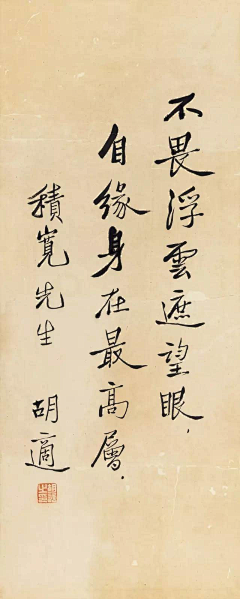 不畏浮雲遮望眼，
自緣身在最高層．
積寬先生
胡適